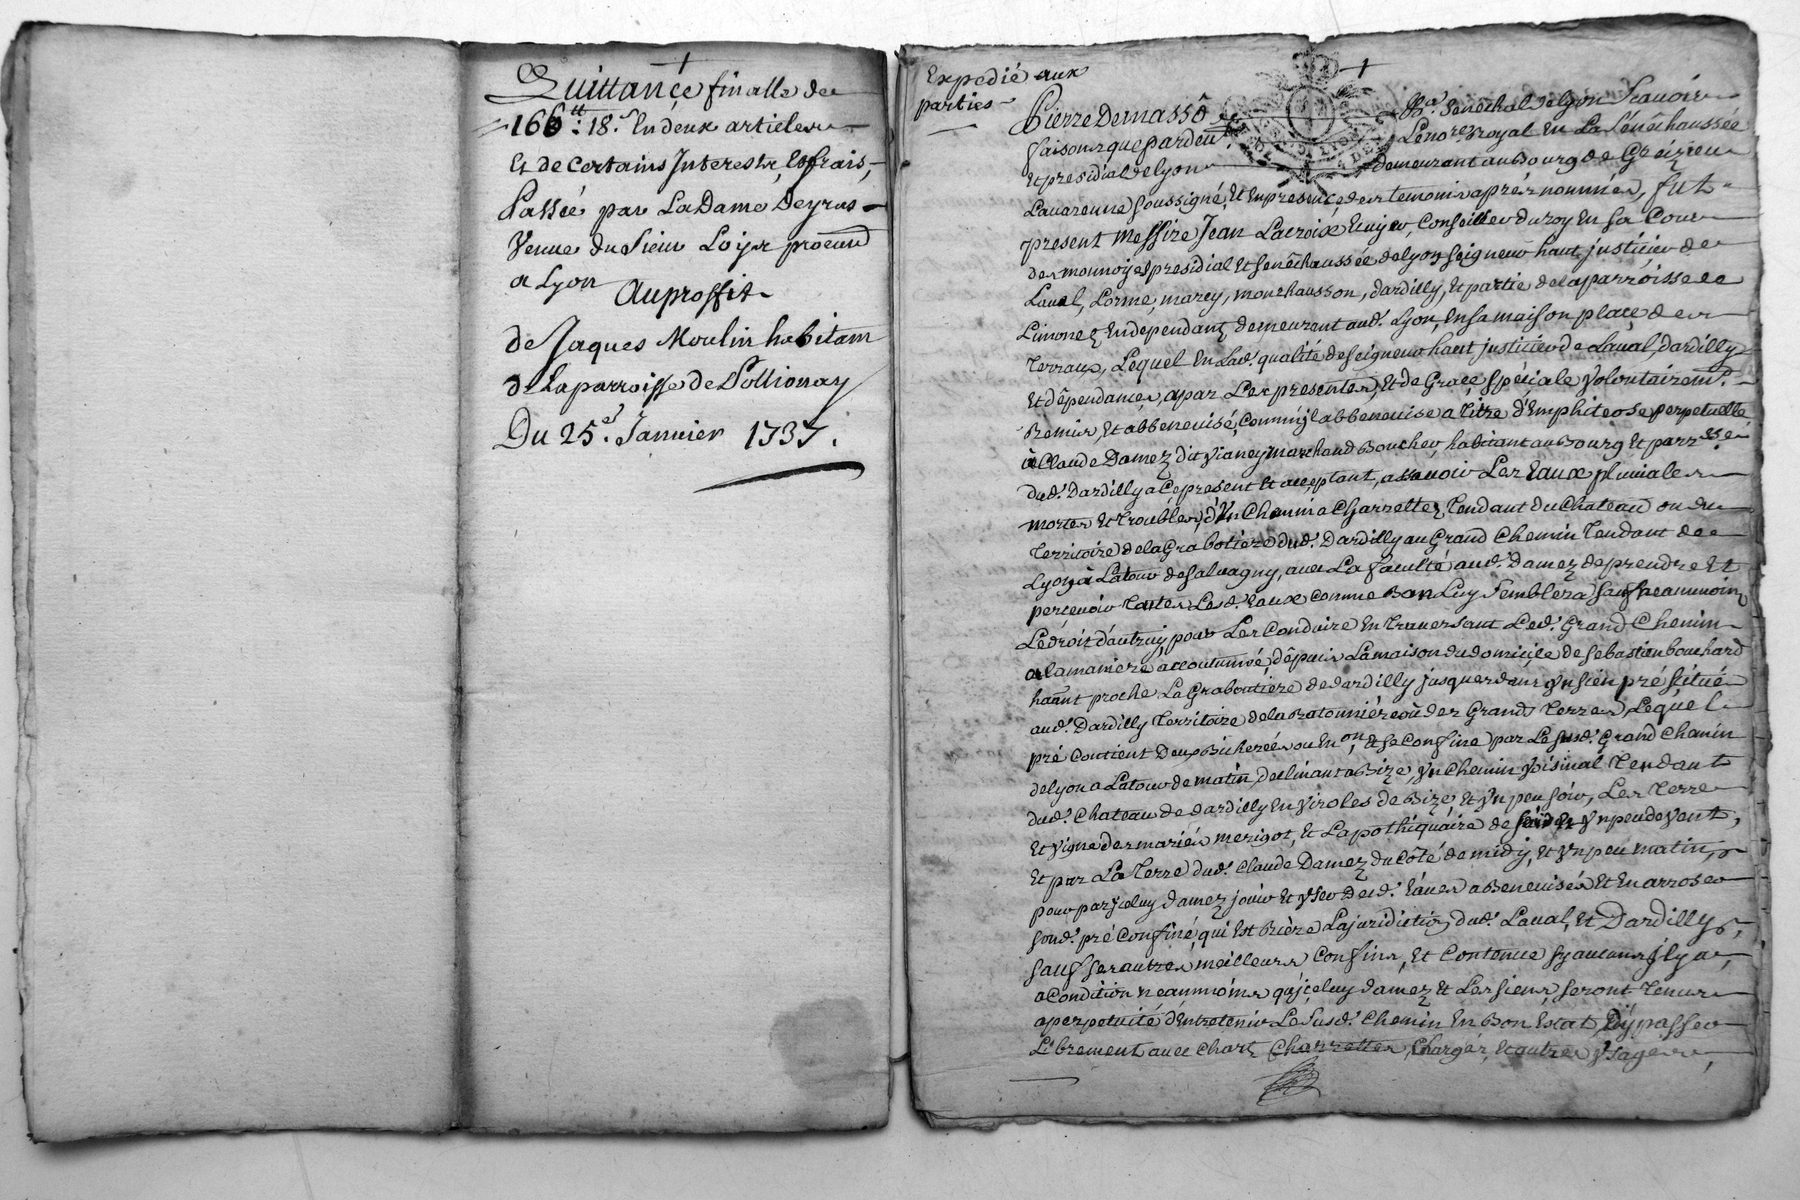 Quittance finalle de
166ᵗᵗ: 18ˢ En deux articles
Et de certains Interests, Et frais,
Passée par La Dame Deyras
Veuve du Sieur Loyer
a Lyon
Au proffit
de Jaques Moulin habitant
de La parroisse de Pollionay
Du 25ᵉ. Janvier 1737.
Expedié aux
parties
Pierre Demassô Sénéchal de Lyon scauoir
faisons que pardeuᵗ Le noʳᵉ royal En La Sénéchaussée
Et presidial de Lyon demeurant au Bourg de Grézieu
Lauarenne soussigné, Et En presence des temoins aprés nommés, fut
present Messire Jean Lacroix Ecuyer, Conseiller du roy En sa Cour
des monnoyes presidial Et senéchaussée de Lyon seigneur haut justicier de
Laual, Lorme, marcy, montchausson, dardilly, Et partie de la parroisse de
Limonez Endependant demeurant aud. Lyon, En sa maison place des
Terraux, Lequel En Lad. qualité de seigneur haut justicier de Laual, dardilly
Et dépendances, a par Les presentes, Et de Grace, spéciale Volontairemᵗ.
Remis, Et abbeneuisé, comm'jl abbeneuise a Titre d'Emphiteose perpetuelle
à Claude Damez dit Vianey Marchand Boucher, habitant au Bourg Et parrˢˢᵉ
dud. Dardilly a Ce present Et acceptant, assauoir Les Eaux pluuiales
mortes Et Troubles, d'Vn Chemin a Charrettes, Tendant du Chateau ou du
Territoire de la Grabotiere dud. Dardilly au Grand Chemin Tendant de
Lyon à La tour de saluagny, auec La faculté aud. Damez de prendre Et
perceuoir Toutes Lesd. Eaux comme Bon Luy semblera sauf neammoins
Le droit d'autruy, pour Les Conduire En Trauersant Led. Grand Chemin
a la maniere accoutumée, dépuis La maison du domicile de sebastien bouchard
haᵇnt proche La Graboutiere de dardilly jusques dans Vn sien pré située
aud. Dardilly Territoire de la Ratonniére où des Grands Terres, Lequel
pré Contient Deux Bicherées ou Enᵒⁿ, & se Confine par Le susd. Grand Chemin
de Lyon a La tour de matin, declinant a Bize, Vn Chemin Voisinal Tendant
dud. Chateau de dardilly En Viroles de Bize, Et Vn peu soir, Les Terre
Et Vigne des mariés merigot, Et Lapothiquaire de Vn peu de Vent,
Et par La Terre dud. Claude Damez du Côté de midy, Et Vn peu matin,
pour par jceluy Damez jouir Et Vser Desd. Eaues abeneuisées Et En arroser
sond. pré Confiné, qui Est Riére La juridiction dud. Laual, Et Dardilly,
sauf ses autres meilleurs Confins, Et Contenue sy aucuns jl y a,
a Condition neammoins qu'jceluy Damez Et Les siens seront Tenus
a perpetuité d'Entretenir Le susd. Chemin En Bon Estat, d'y passer
Librement auec Chars Charrettes, Chargés, Et autres Vsages,